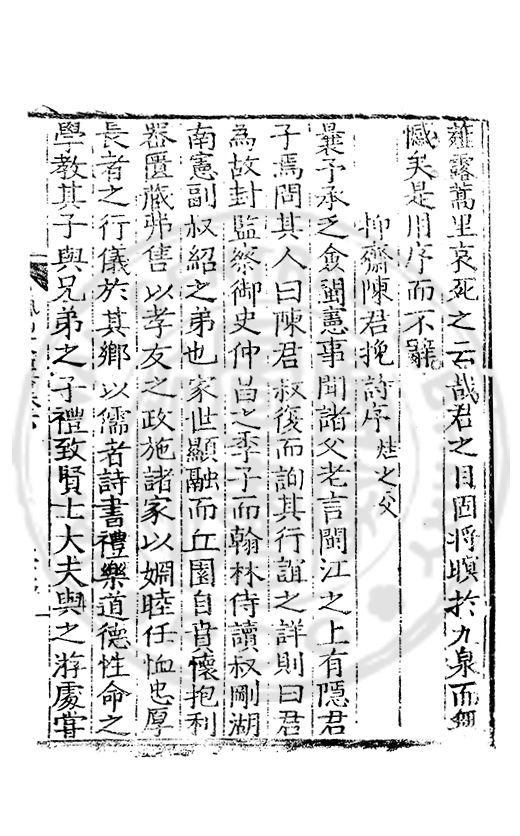 薤露蒿里哀死之云哉君之目固將瞑於九泉而無
憾矣是用序而不辭
抑齋陳君挽詩序 烓之父
曩予承乏僉閩憲事聞諸父老言閩江之上有隱君
子焉問其人曰陳君叔復而詢其行誼之詳則曰君
為故封監察御史仲昌之季子而翰林侍讀叔剛湖
南憲副叔紹之弟也家世顯融而丘園自賁懷抱利
器匱蔵弗售以孝友之政施諸家以婣睦任恤忠厚
長者之行儀於其鄉以儒者詩書禮樂道德性命之
學教其子與兄弟之子禮致賢士大夫與之游處甞